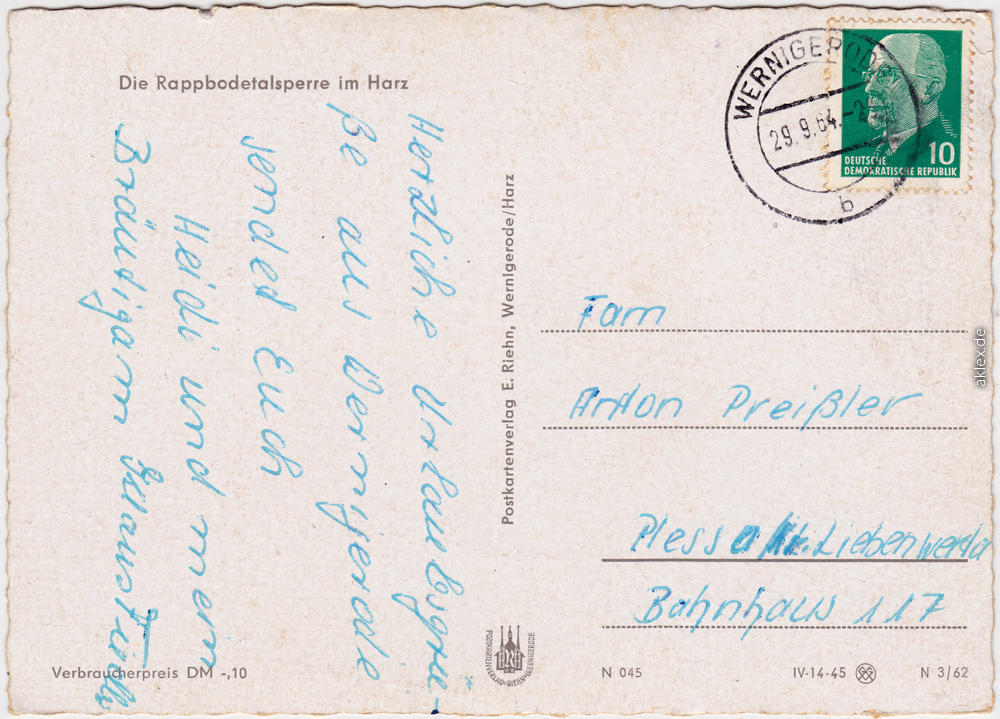 Die Rappbodetalsperre im Harz
Herzliche Urlaubsgrü-
ße aus Wernigerode
sendet Euch
Heidi und mein
Bräutigam
Verbraucherpreis DM -,10
Postkartenverlag E. Riehn, Wernigerode/Harz
POSTKARTENVERLAG·RIEHN·WERNIGERODE
WERNIGERODE
29.9.64.-2
b
10
DEUTSCHE
DEMOKRATISCHE REPUBLIK
Fam
Anton Preißler
Plessa Kr. Liebenwerda
Bahnhaus 117
N 045
IV-14-45
N 3/62
aklex.de